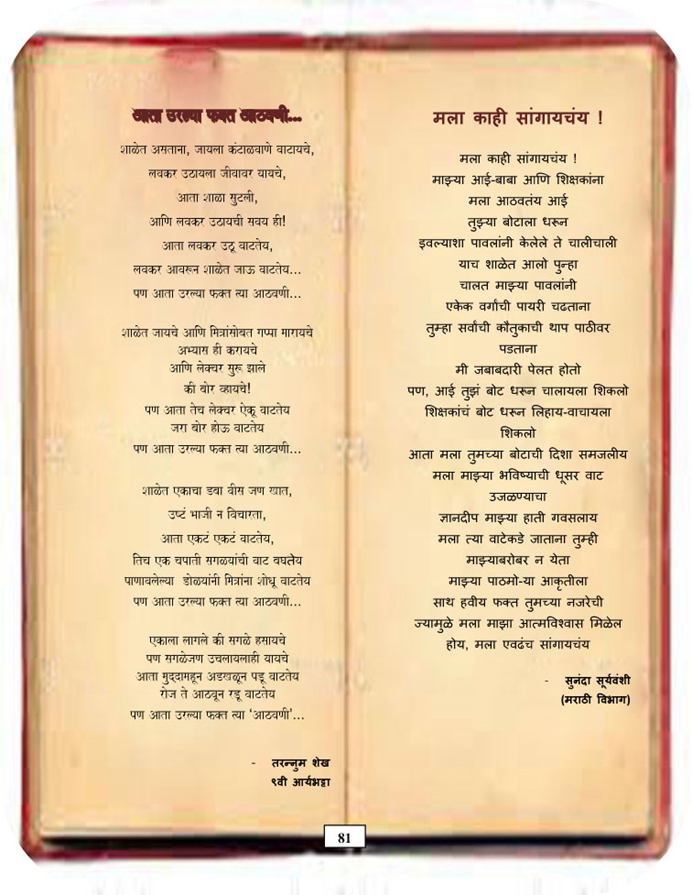 आता उरल्या फक्त आठवणी...
शाळेत असताना, जायला कंटाळवाणे वाटायचे,
लवकर उठायला जीवावर यायचे,
आता शाळा सुटली,
आणि लवकर उठायची सवय ही!
आता लवकर उठू वाटतेय,
लवकर आवरून शाळेत जाऊ वाटतेय...
पण आता उरल्या फक्त त्या आठवणी...
शाळेत जायचे आणि मित्रांसोबत गप्पा मारायचे
अभ्यास ही करायचे
आणि लेक्चर सुरू झाले
की बोर व्हायचे!
पण आता तेच लेक्चर ऐकू वाटतेय
जरा बोर होऊ वाटतेय
पण आता उरल्या फक्त त्या आठवणी...
शाळेत एकाचा डबा वीस जण खात,
उष्टं भाजी न विचारता,
आता एकटं एकटं वाटतेय,
तिच एक चपाती सगळयांची वाट बघतेय
पाणावलेल्या डोळयांनी मित्रांना शोधू वाटतेय
पण आता उरल्या फक्त त्या आठवणी...
एकाला लागले की सगळे हसायचे
पण सगळेजण उचलायलाही यायचे
आता मुद्दामहून अडखळून पडू वाटतेय
रोज ते आठवून रडू वाटतेय
पण आता उरल्या फक्त त्या ‘आठवणी’...
- तरन्नुम शेख
९वी आर्यभट्टा
मला काही सांगायचंय !
मला काही सांगायचंय !
माझ्या आई-बाबा आणि शिक्षकांना
मला आठवतंय आई
तुझ्या बोटाला धरून
इवल्याशा पावलांनी केलेले ते चालीचाली
याच शाळेत आलो पुन्हा
चालत माझ्या पावलांनी
एकेक वर्गाची पायरी चढताना
तुम्हा सर्वांची कौतुकाची थाप पाठीवर
पडताना
मी जबाबदारी पेलत होतो
पण, आई तुझं बोट धरून चालायला शिकलो
शिक्षकांचं बोट धरून लिहाय-वाचायला
शिकलो
आता मला तुमच्या बोटाची दिशा समजलीय
मला माझ्या भविष्याची धूसर वाट
उजळण्याचा
ज्ञानदीप माझ्या हाती गवसलाय
मला त्या वाटेकडे जाताना तुम्ही
माझ्याबरोबर न येता
माझ्या पाठमो-या आकृतीला
साथ हवीय फक्त तुमच्या नजरेची
ज्यामुळे मला माझा आत्मविश्वास मिळेल
होय, मला एवढंच सांगायचंय
- सुनंदा सूर्यवंशी
(मराठी विभाग)
81